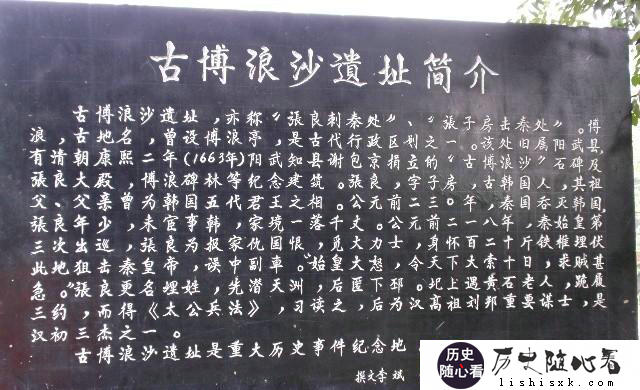 古博浪沙遺址简介
古博浪沙遺址，亦称“張良刺秦处”、“張子房击秦处”。博
浪，古地名，曾设博浪亭，是古代行政区划之一。该处旧属阳武县，
有清朝康熙二年(1663年)阳武知县谢包京捐立的“古博浪沙”石碑及
張良大殿，博浪碑林等纪念建筑。張良，字子房，古韩国人，其祖
父、父辈曾为韩国五代君王之相。公元前二三〇年，秦国吞灭韩国，
張良年少，未宦事韩，家境一落千丈。公元前二一八年，秦始皇第
三次出巡，張良为报家仇国恨，觅大力士，身怀百二十斤铁椎埋伏
此地狙击秦皇帝，误中副車。“始皇大怒，令天下大索十日，求贼甚
急。”張良更名埋姓，先潜天洲，后匿下邳。圯上遇黄石老人，跪履
三约，而得《太公兵法》，习读之，后为汉高祖刘邦重要谋士，是
汉初三杰之一。
古博浪沙遺址是重大历史事件纪念地
撰文李斌
历史
随心看
历史随心看
lishisxk.com